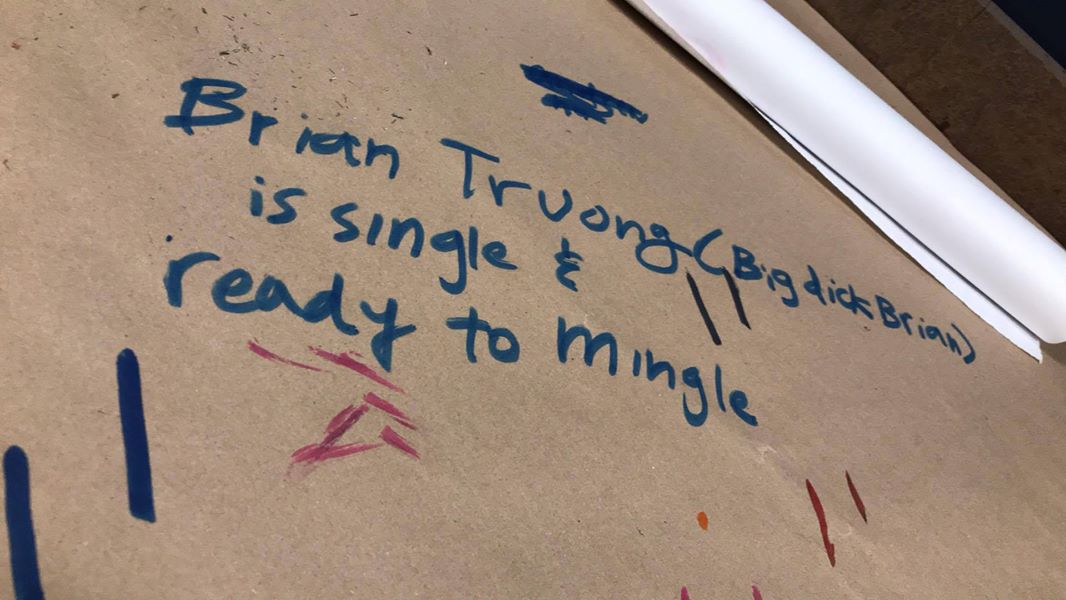 Brian Truong (Big dick Brian)
is single &
ready to mingle